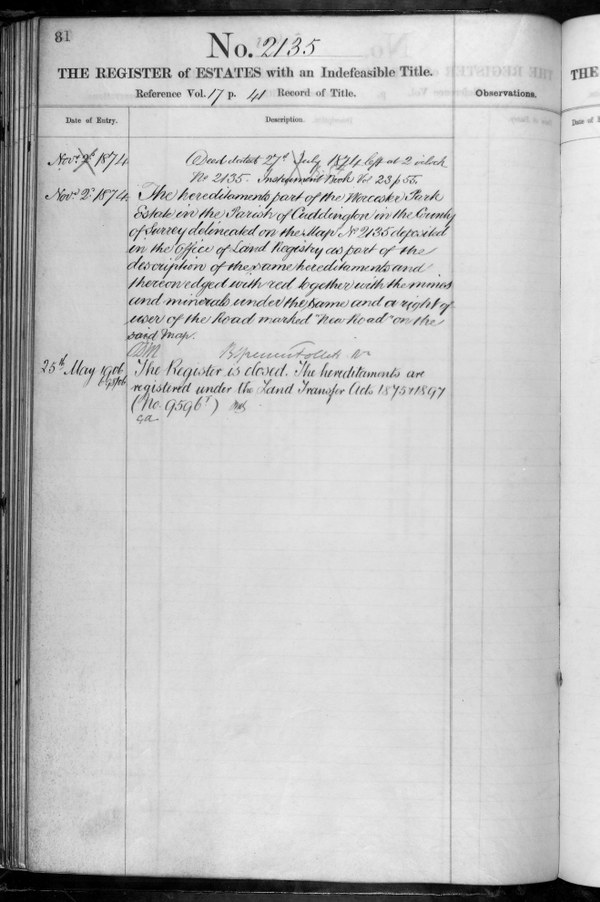 81
No. 2135
THE REGISTER of ESTATES with an Indefeasible Title.
Reference Vol. 17 p. 41 Record of Title.
Observations.
Date of Entry.
Description.
Novr. 2d 1874
Deed dated 27th July 1874 left at 2 oclock
No 2135. Instrument Book Vol 23 p 55.
Novr 2d 1874
The hereditaments part of the Worcester Park
Estate in the Parish of Cuddington in the County
of Surrey delineated on the Map No 2135 deposited
in the Office of Land Registry as part of the
description of the same hereditaments and
thereon edged with red together with the mines
and minerals under the same and a right of
user of the Road marked "New Road" on the
said Map.
25th May 1906
The Register is closed. The hereditaments are
registered under the Land Transfer Acts 1875 & 1897
(No. 9596)
THE
Date of E